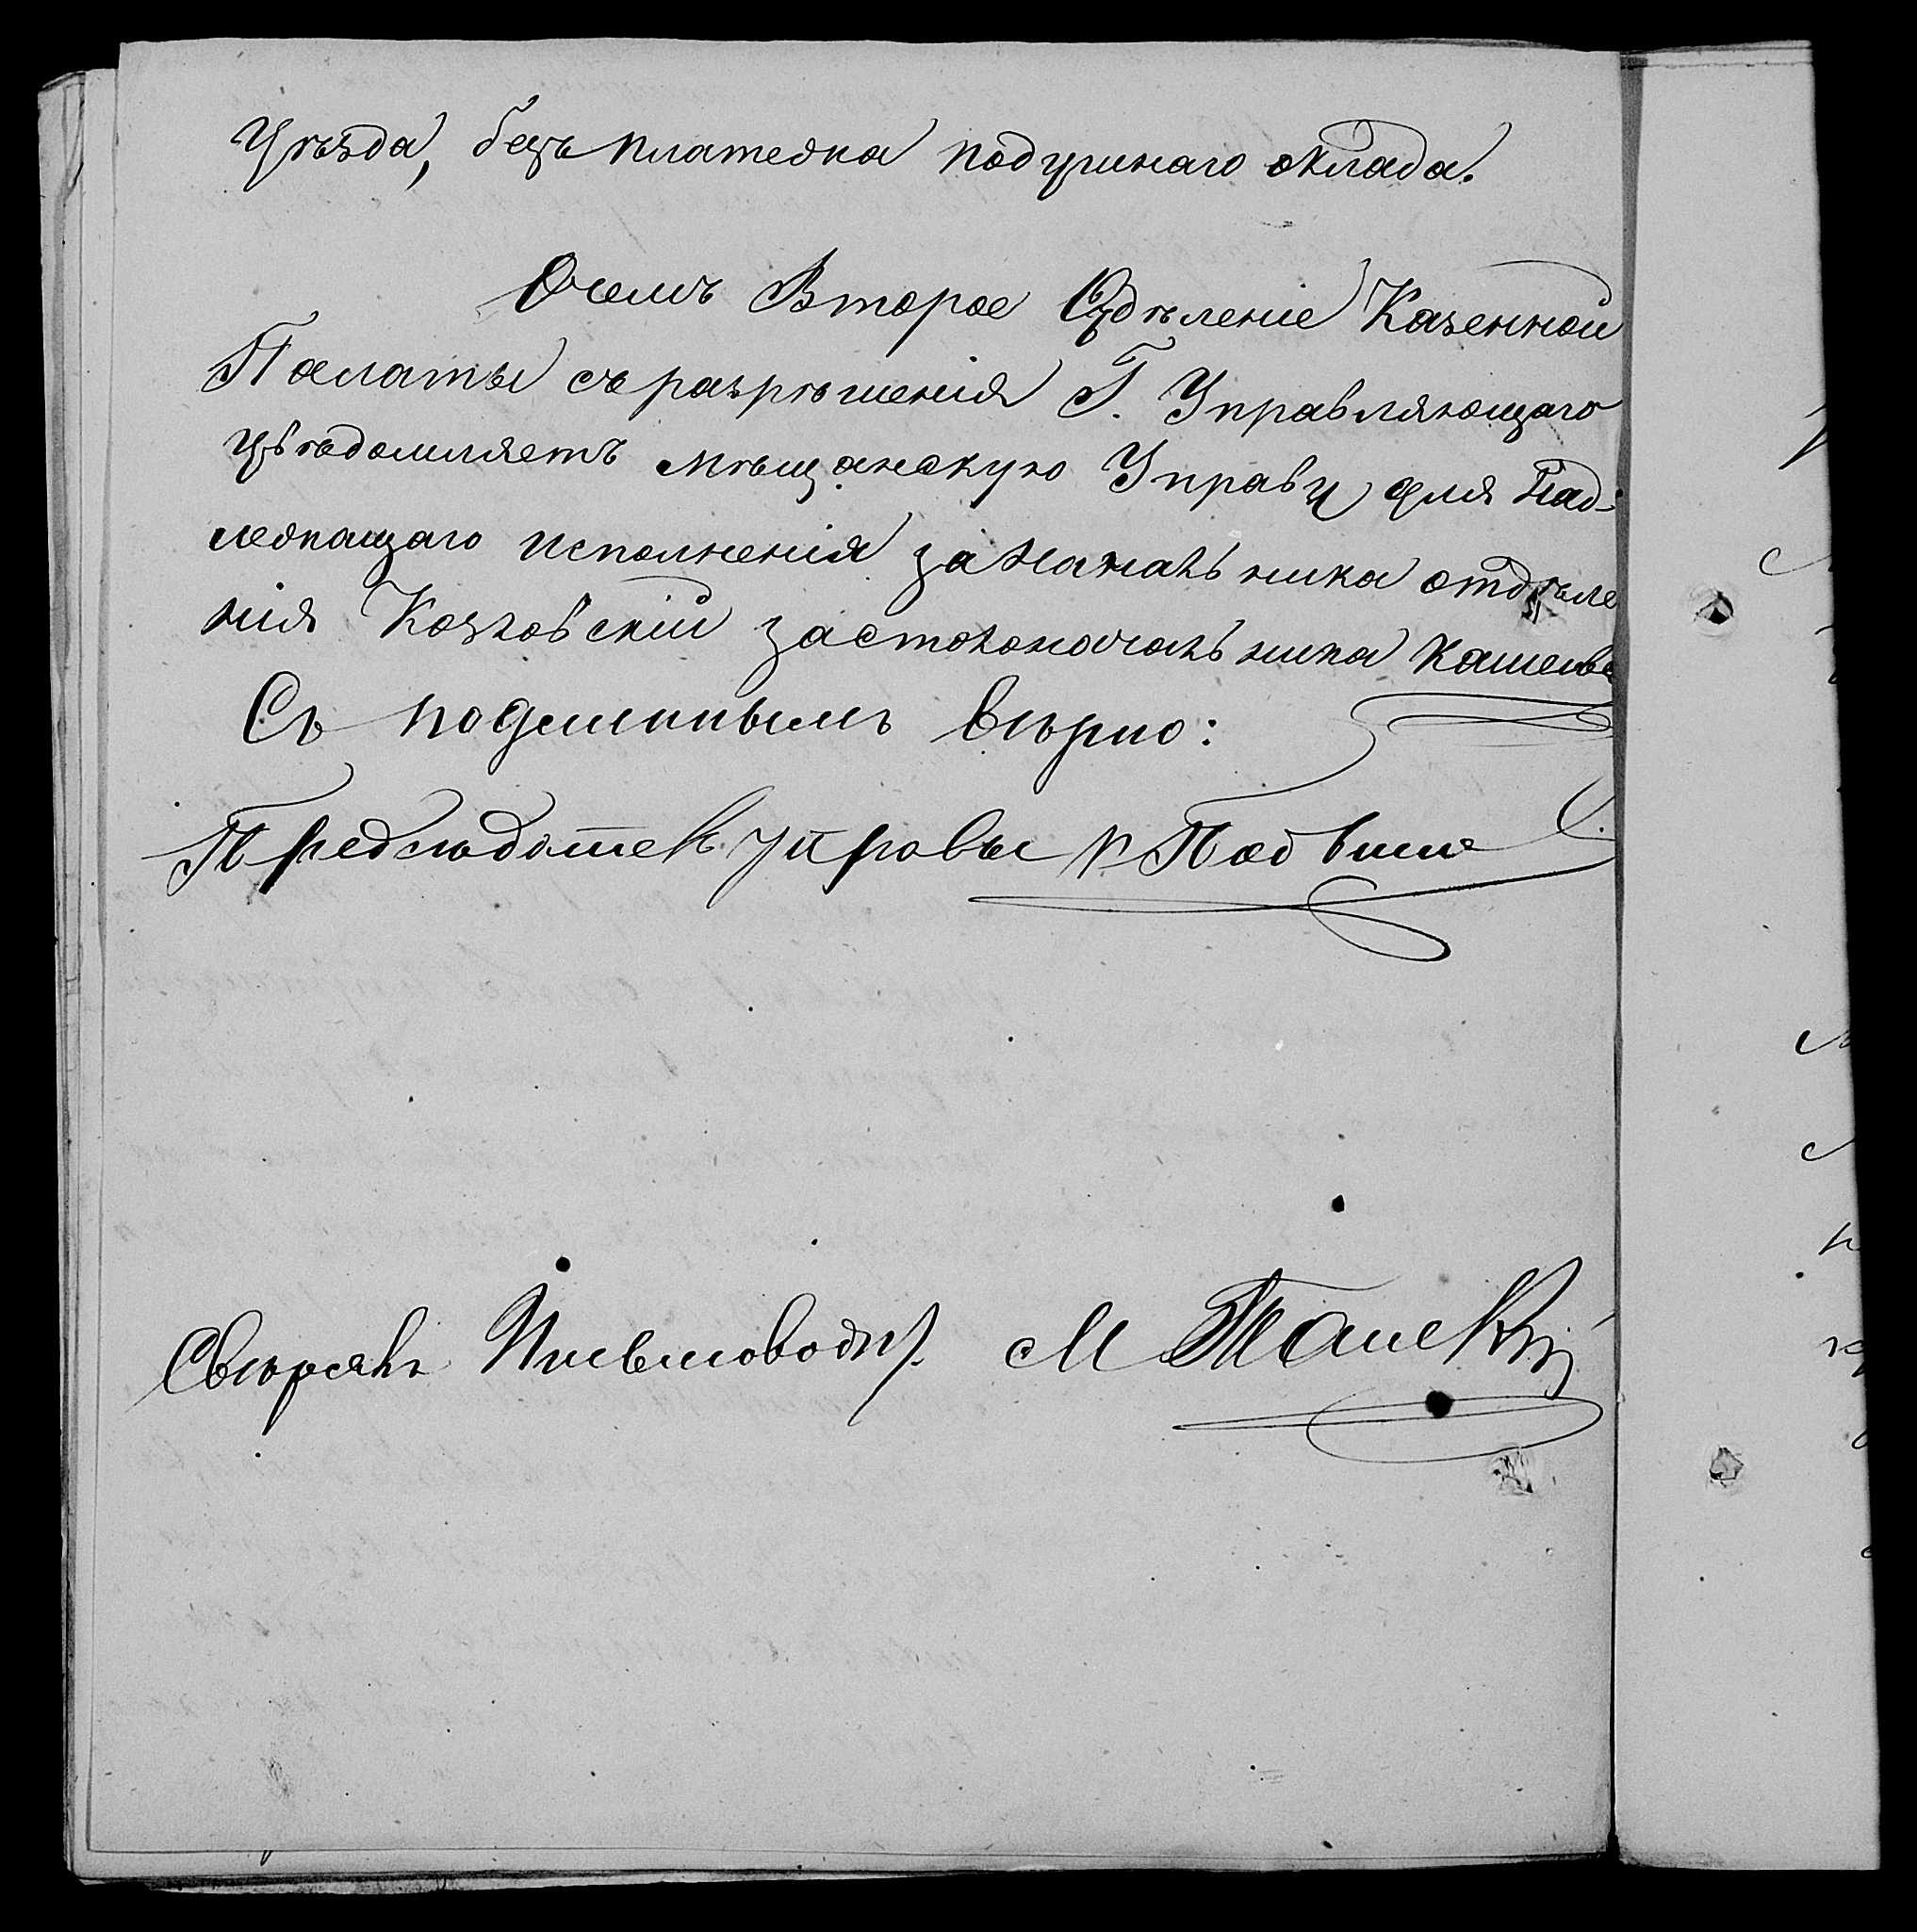 уѣзда, безъ платежа подушнаго оклада.
О чемъ Второе Отдѣленіе Казенной
Палаты съ разрѣшенія Г. Управляющаго
увѣдомляетъ мѣщанскую Управу для над-
лежащаго исполненія за Начальника отдѣле
нія Козловскій за столоначальника
Съ подлиннымъ вѣрно:
Предсѣдатель Управы
Свѣрялъ Письмоводит.